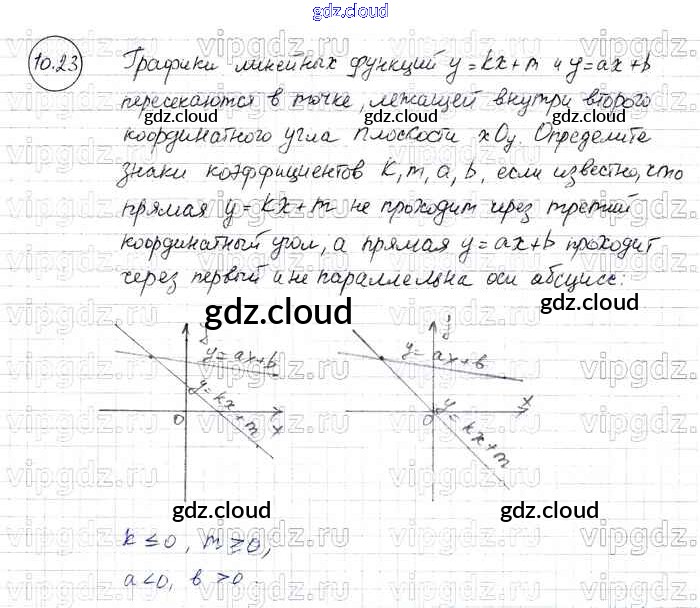 gdz.cloud
10.23
Графики линейных функций y=kx+m и y=ax+b
пересекаются в точке, лежащей внутри второго
координатного угла плоскости xOy. Определите
знаки коэффициентов k, m, a, b, если известно, что
прямая y=kx+m не проходит через третий
координатный угол, а прямая y=ax+b проходит
через первый и не параллельна оси абсцисс:
gdz.cloud
y y
y=ax+b y=ax+b
y=kx+m y=kx+m
O x O x
gdz.cloud gdz.cloud
k ≤ 0, m ≥ 0,
a < 0, b > 0.